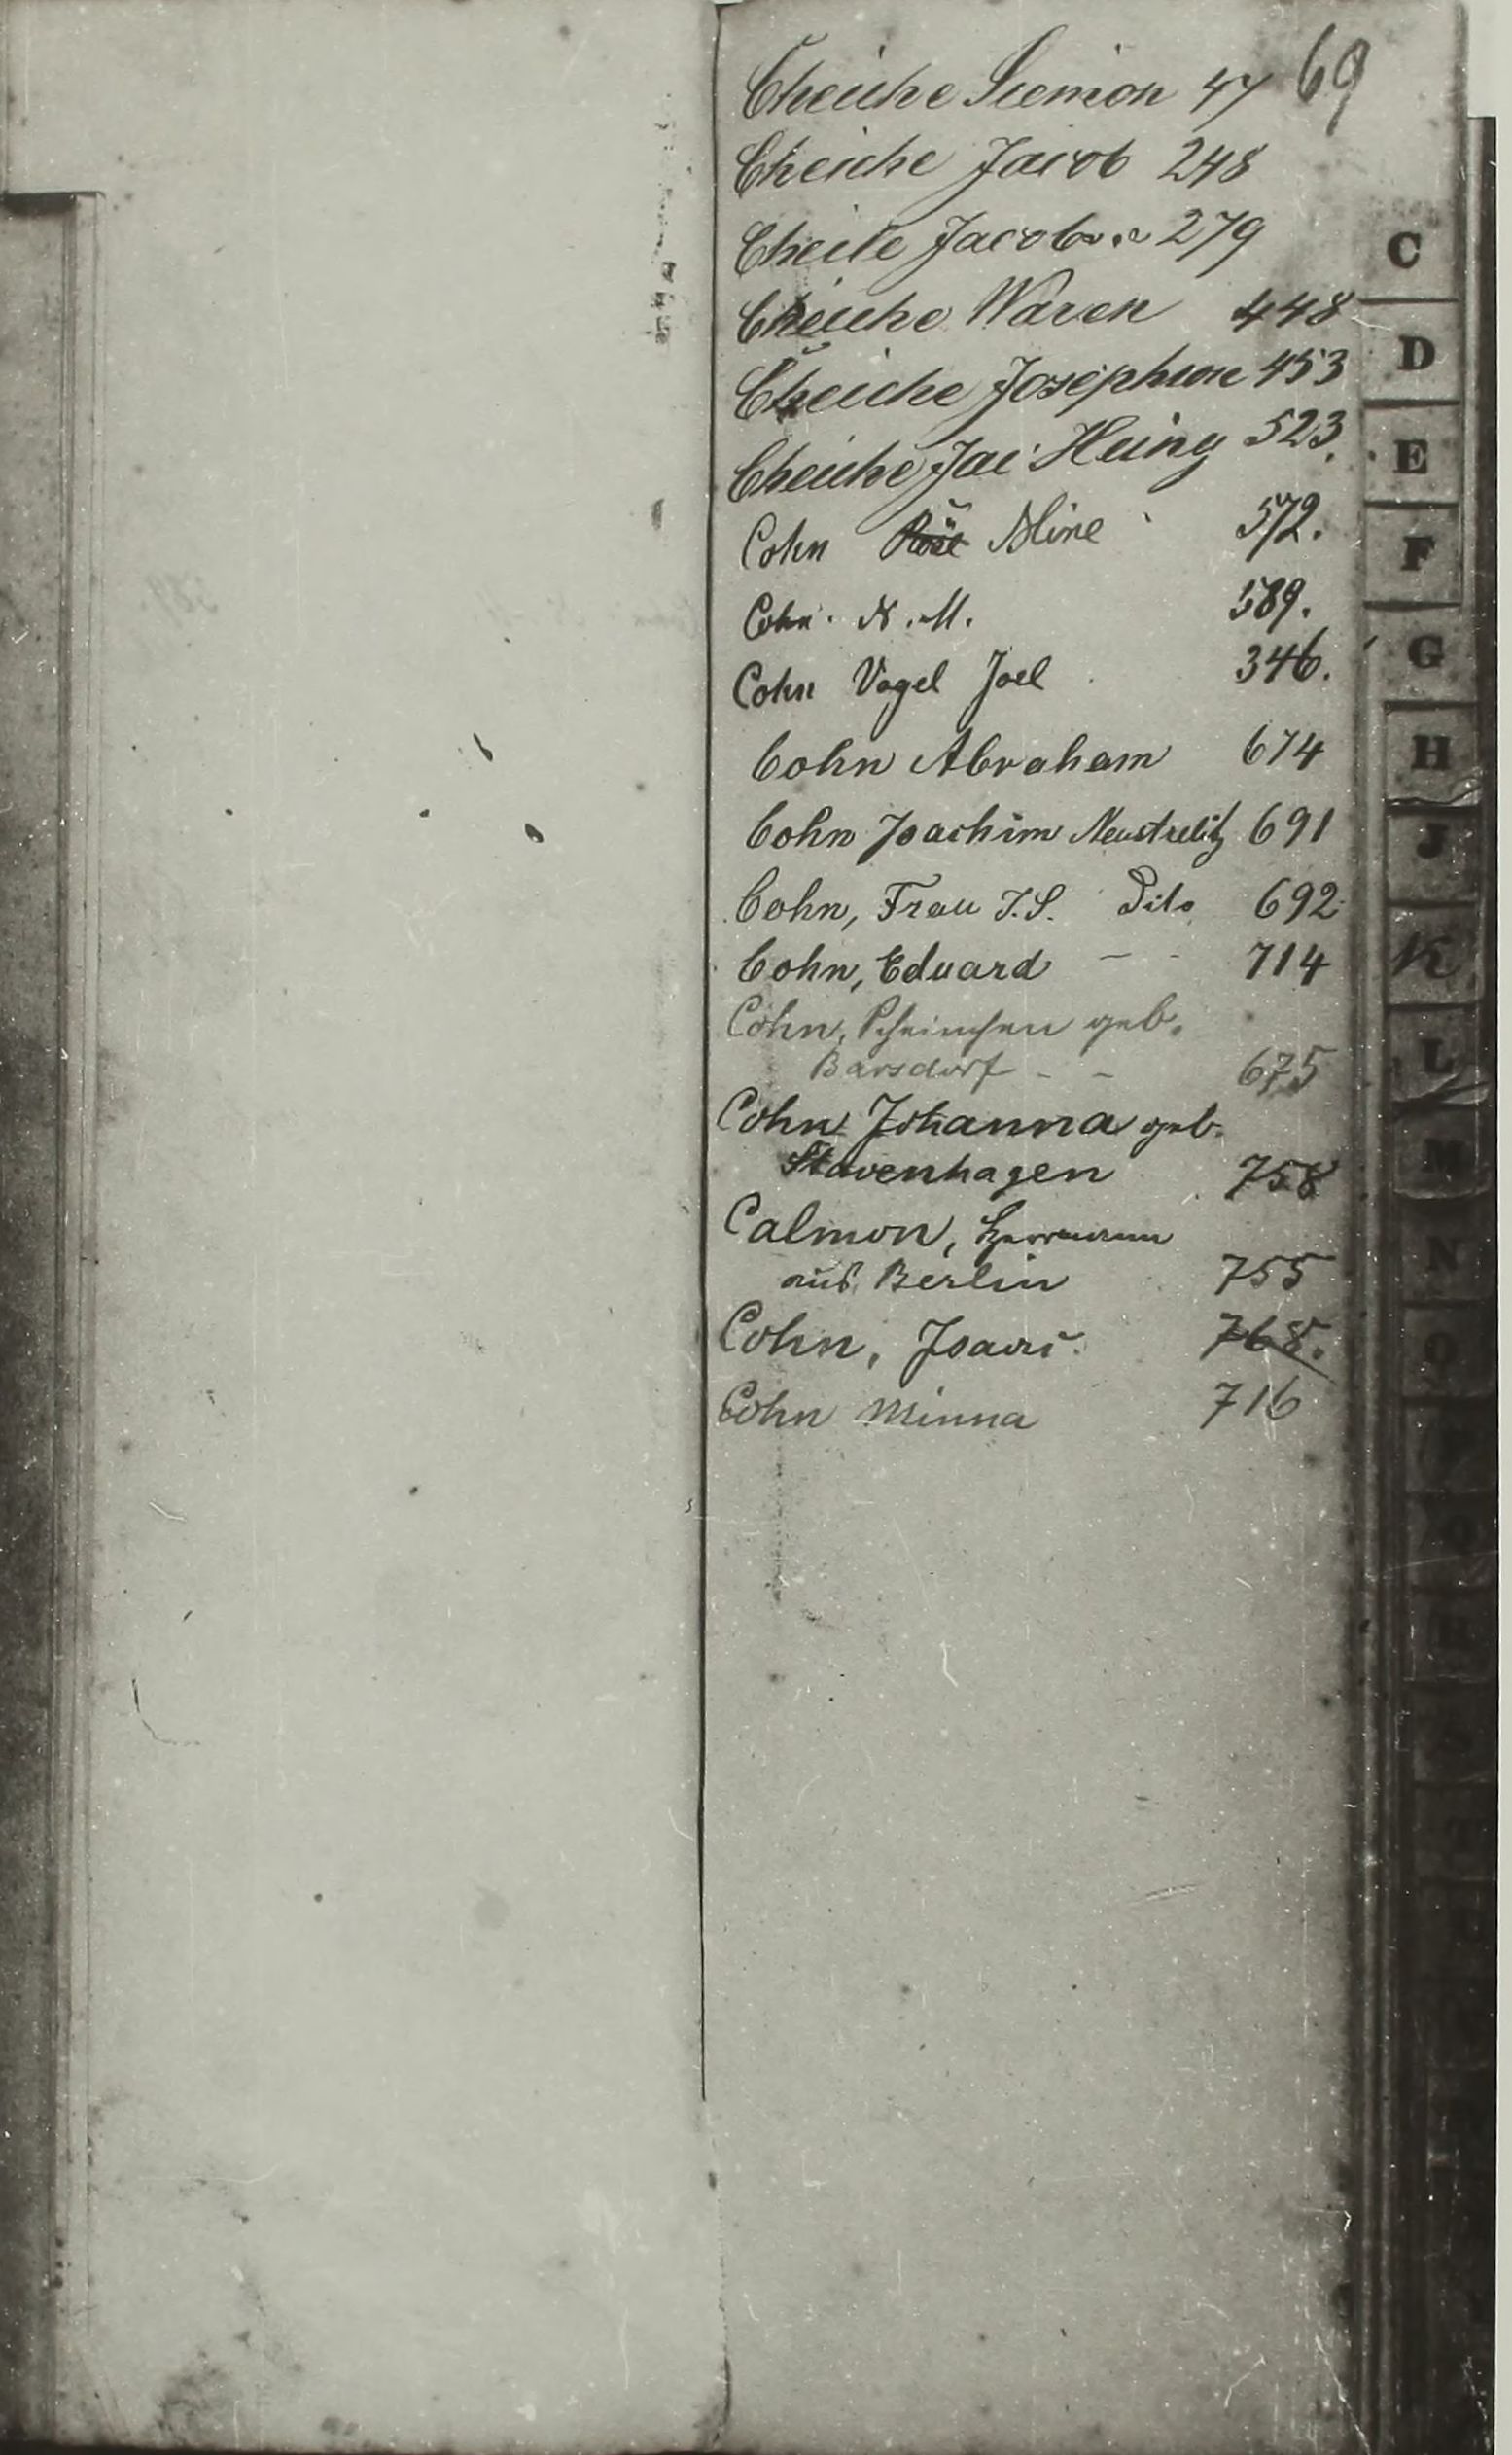 69
Cheiche Siemon 47
Cheiche Jacob 248
Cheile Jacobs 279
Cheiche Waren 448
Cheiche Josephine 453
Cheiche Jac Heiny 523.
Cohn Röse Mine 572.
Cohn. N. M. 589.
Cohn Vogel Joel 346.
Cohn Abraham 674
Cohn Joachim Neustrelitz 691
Cohn, Frau J.S. Dito 692
Cohn, Eduard - - 714
Cohn, geb.
Barsdorf - - 675
Cohn Johanna geb.
Stavenhagen 758
Calmon, Herrmann
aus Berlin 755
Cohn, Isaac. 768.
Cohn Minna 716
C
D
E
F
G
H
J
K
L
M
N
O